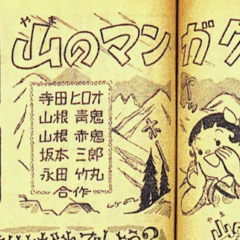 やま
山のマンガク
寺田ヒロオ
山根青鬼
山根赤鬼
坂本三郎
永田竹丸
合作